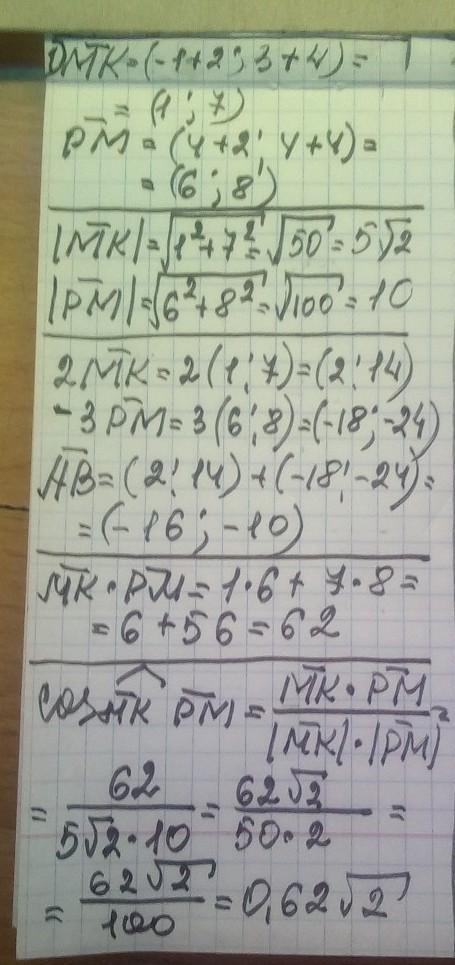 1) M̅K̅ = (-1+2; 3+4) =
= (1; 7)
P̅M̅ = (4+2; 4+4) =
= (6; 8)
|M̅K̅| = √(1²+7²) = √50 = 5√2
|P̅M̅| = √(6²+8²) = √100 = 10
2M̅K̅ = 2(1; 7) = (2; 14)
-3P̅M̅ = 3(6; 8) = (-18; -24)
A̅B̅ = (2; 14) + (-18; -24) =
= (-16; -10)
M̅K̅ · P̅M̅ = 1·6 + 7·8 =
= 6 + 56 = 62
cos M̅K̅ P̅M̅ = M̅K̅ · P̅M̅ / |M̅K̅| · |P̅M̅| =
= 62 / 5√2·10 = 62√2 / 50·2 =
= 62√2 / 100 = 0,62√2